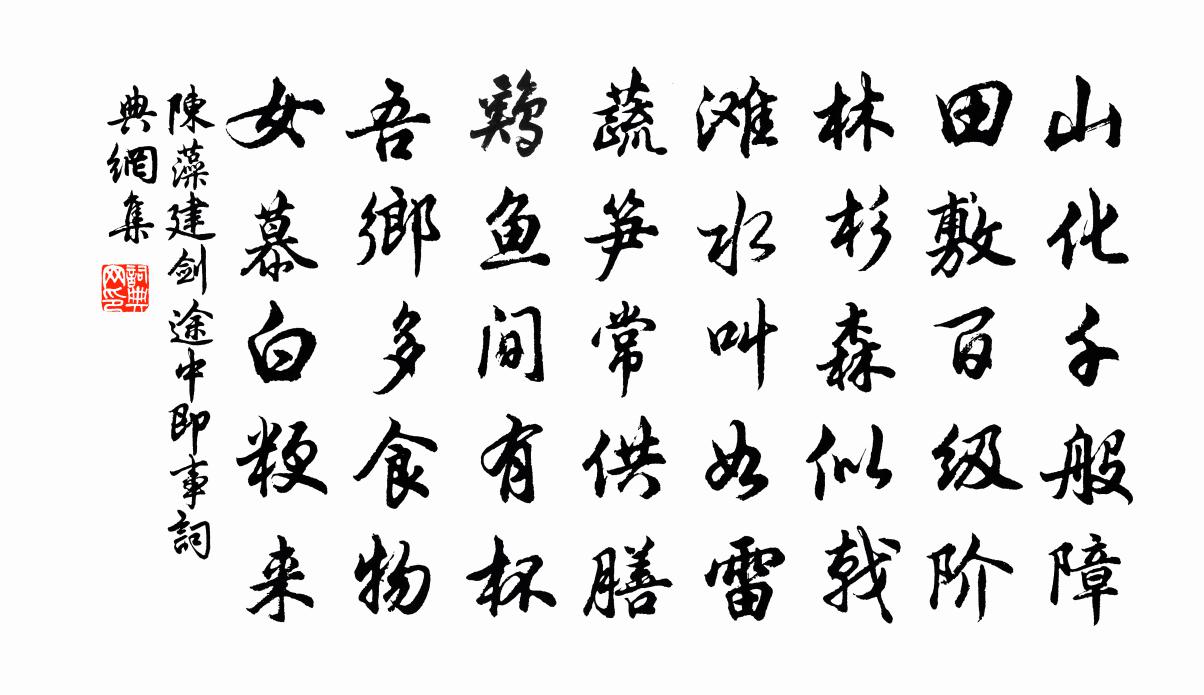 山化千般障
田敷百级阶
林杉森似戟
滩水叫如雷
蔬笋常供膳
鸡鱼间有杯
吾鄉多食物
女慕白粳来
陳藻建剑途中即事詞
典網集
詞典
网印